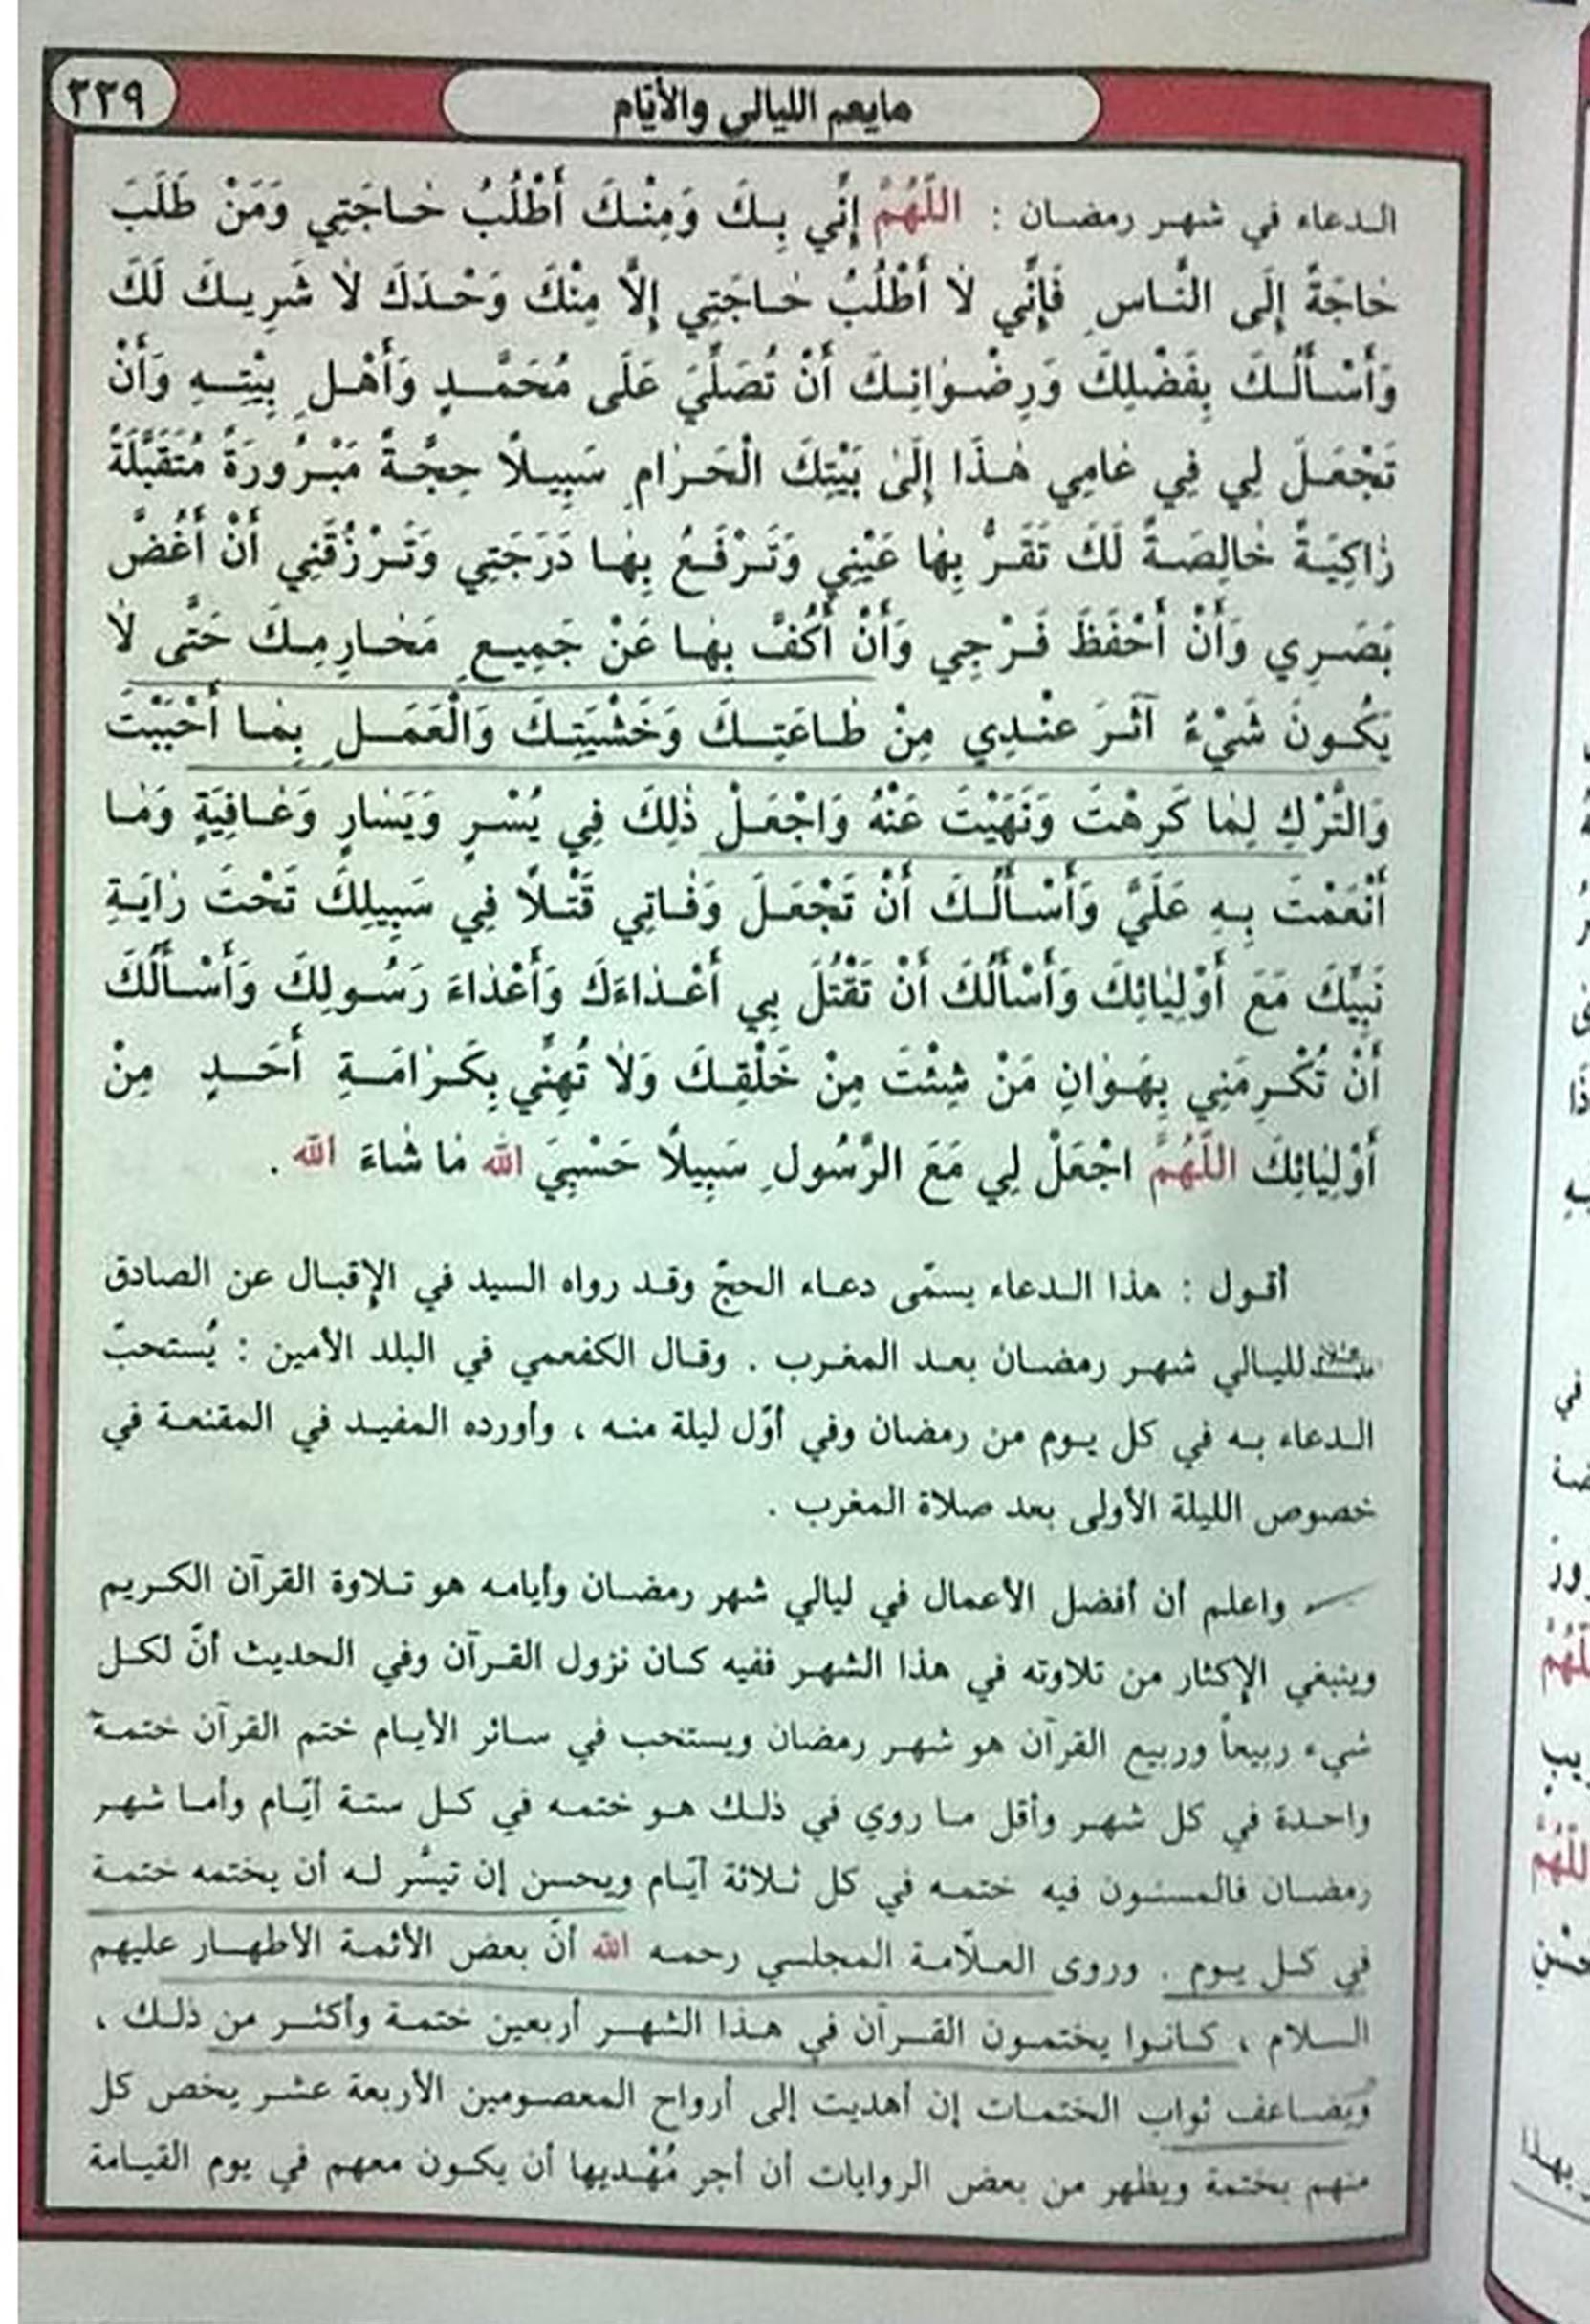 ٢٣٩
مايعم الليالي والأيّام
الدعاء في شهر رمضان : اللَّهُمَّ إِنِّي بِكَ وَمِنْكَ أَطْلُبُ حٰاجَتِي وَمَنْ طَلَبَ
حٰاجَةً إِلَى النَّاسِ فَإِنِّي لٰا أَطْلُبُ حٰاجَتِي إِلَّا مِنْكَ وَحْدَكَ لٰا شَرِيكَ لَكَ
وَأَسْأَلُكَ بِفَضْلِكَ وَرِضْوٰانِكَ أَنْ تُصَلِّيَ عَلَى مُحَمَّدٍ وَأَهْلِ بِيْتِهِ وَأَنْ
تَجْعَلَ لِي فِي عٰامِي هٰذَا إِلَىٰ بَيْتِكَ الْحَرٰامِ سَبِيلًا حِجَّةً مَبْرُورَةً مُتَقَبَّلَةً
زٰاكِيَةً خٰالِصَةً لَكَ تَقَرُّ بِهٰا عَيْنِي وَتَرْفَعُ بِهٰا دَرَجَتِي وَتَرْزُقَنِي أَنْ أَغُضَّ
بَصَرِي وَأَنْ أَحْفَظَ فَرْجِي وَأَنْ أَكُفَّ بِهٰا عَنْ جَمِيعِ مَحٰارِمِكَ حَتَّى لٰا
يَكُونَ شَيْءٌ آثَرَ عِنْدِي مِنْ طٰاعَتِكَ وَخَشْيَتِكَ وَالْعَمَلِ بِمٰا أَحْبَبْتَ
وَالتَّرْكِ لِمٰا كَرِهْتَ وَنَهَيْتَ عَنْهُ وَاجْعَلْ ذٰلِكَ فِي يُسْرٍ وَيَسٰارٍ وَعٰافِيَةٍ وَمٰا
أَنْعَمْتَ بِهِ عَلَيَّ وَأَسْأَلُكَ أَنْ تَجْعَلَ وَفٰاتِي قَتْلًا فِي سَبِيلِكَ تَحْتَ رٰايَةِ
نَبِيِّكَ مَعَ أَوْلِيٰائِكَ وَأَسْأَلُكَ أَنْ تَقْتُلَ بِي أَعْدٰاءَكَ وَأَعْدٰاءَ رَسُولِكَ وَأَسْأَلُكَ
أَنْ تُكْرِمَنِي بِهَوٰانِ مَنْ شِئْتَ مِنْ خَلْقِكَ وَلٰا تُهِنِّي بِكَرٰامَةِ أَحَدٍ مِنْ
أَوْلِيٰائِكَ اللَّهُمَّ اجْعَلْ لِي مَعَ الرَّسُولِ سَبِيلًا حَسْبِيَ الله مٰا شٰاءَ الله .
أقول : هذا الدعاء يسمّى دعاء الحجّ وقد رواه السيد في الإقبال عن الصادق
لليالي شهر رمضان بعد المغرب . وقال الكفعمي في البلد الأمين : يُستحبّ
الدعاء به في كل يوم من رمضان وفي أوّل ليلة منه ، وأورده المفيد في المقنعة في
خصوص الليلة الأولى بعد صلاة المغرب .
واعلم أن أفضل الأعمال في ليالي شهر رمضان وأيامه هو تلاوة القرآن الكريم
وينبغي الإكثار من تلاوته في هذا الشهر ففيه كان نزول القرآن وفي الحديث أنّ لكل
شيء ربيعاً وربيع القرآن هو شهر رمضان ويستحب في سائر الأيام ختم القرآن ختمة
واحدة في كل شهر وأقل ما روي في ذلك هو ختمه في كل ستة أيّام وأما شهر
رمضان فالمسنون فيه ختمه في كل ثلاثة أيّام ويحسن إن تيسّر له أن يختمه ختمة
في كل يوم . وروى العلّامة المجلسي رحمه الله أنّ بعض الأئمة الأطهار عليهم
السلام ، كانوا يختمون القرآن في هذا الشهر أربعين ختمة وأكثر من ذلك ،
وَيُضاعف ثواب الختمات إن أهديت إلى أرواح المعصومين الأربعة عشر يخص كل
منهم بختمة ويظهر من بعض الروايات أن أجر مُهْديها أن يكون معهم في يوم القيامة